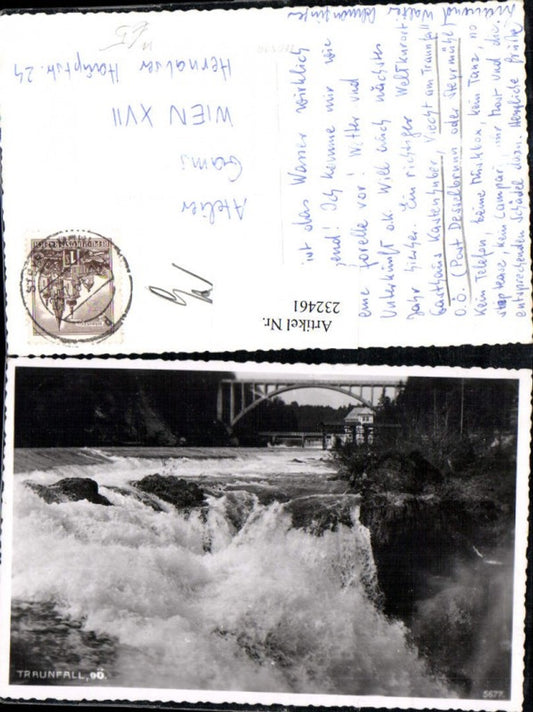 ist das Wasser wirklich
jend! Ich komme mir wie
eine Forelle vor! Wetter und
Unterkunft o.k. Will auch nächstes
Jahr hierher. Ein richtiger Weltkurort
Gasthaus Kastenhuber, Viecht am Traunfall
O.Ö. (Post Desselbrunn oder Steyrmühl)
Kein Telefon, keine Musikbox, kein Tanz, no
strip tease, kein Campari, nur Most und die
entsprechenden Schädel dazu. Herzliche Grüße
Walter
Atelier
Gams
WIEN XVII
Hernalser Hauptstr. 24
Artikel Nr.
232461
TRAUNFALL, OÖ.
5677